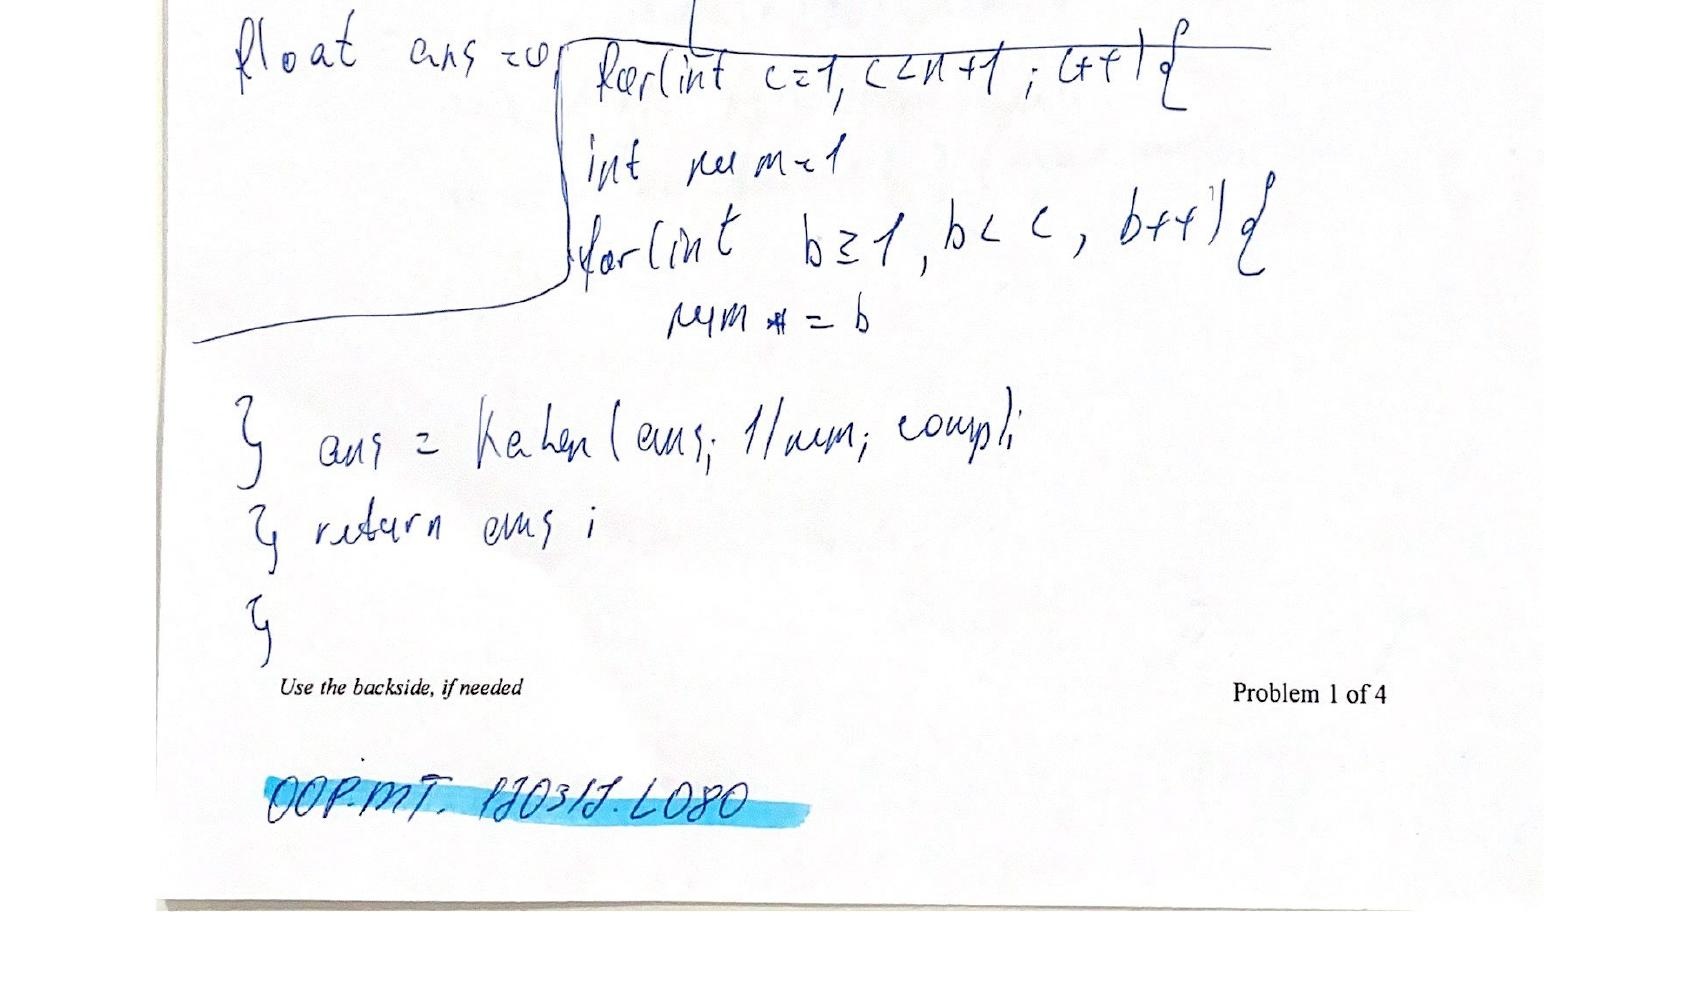 float ans =0,
for(int c=1, c<n+1 ; c++){
int num=1
for(int b=1, b< c, b++){
num *= b
} ans = Kahen (ans; 1/num; comp);
} return ans ;
}
Use the backside, if needed
Problem 1 of 4
OOP.MT.